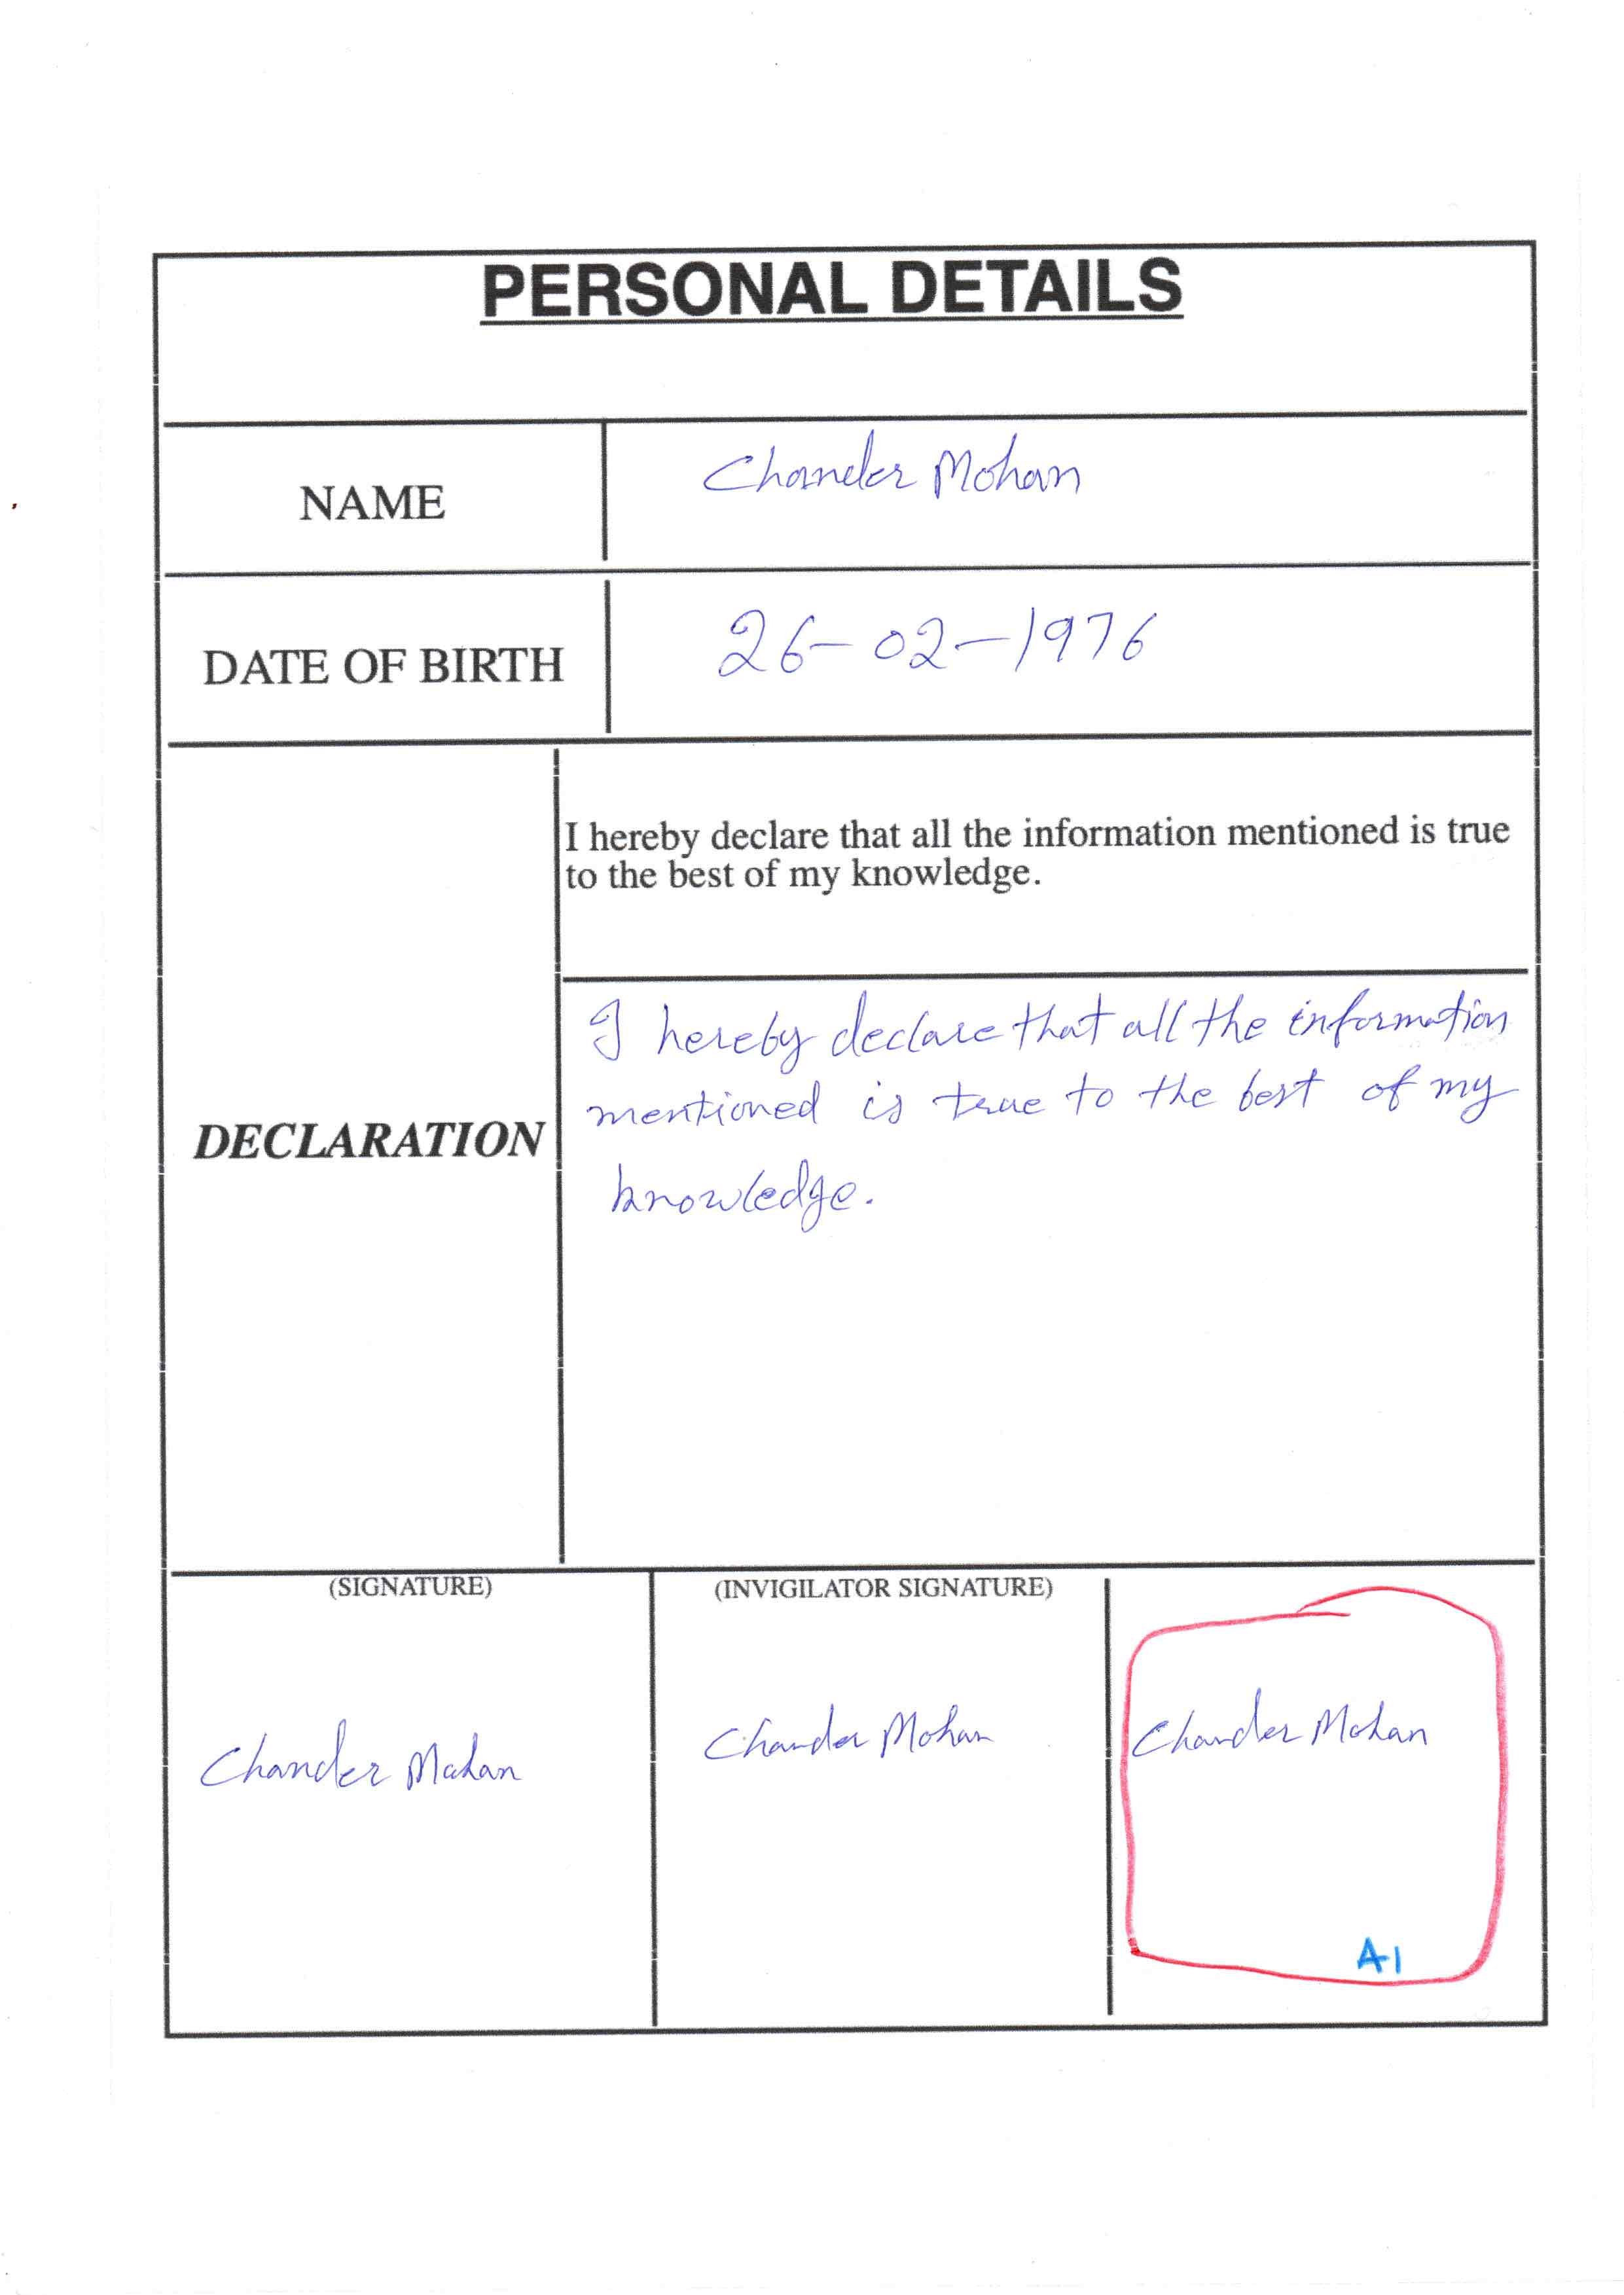 PERSONAL DETAILS
NAME
Chander Mohan
DATE OF BIRTH
26-02-1976
I hereby declare that all the information mentioned is true
to the best of my knowledge.
DECLARATION
I hereby declare that all the information
mentioned is true to the best of my
knowledge.
(SIGNATURE)
(INVIGILATOR SIGNATURE)
Chander Mohan
Chander Mohan
Chander Mohan
A1